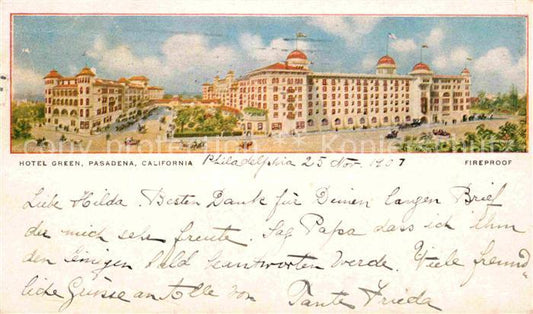 HOTEL GREEN, PASADENA, CALIFORNIA Philadelphia 25 Nov. 1907 FIREPROOF
Liebe Hilda. Besten Dank für Deinen langen Brief
der mich sehr freute. Sag Papa dass ich ihm
den seinigen bald beantworten werde. Viele freund-
liche Grüsse an Alle von Tante Frieda